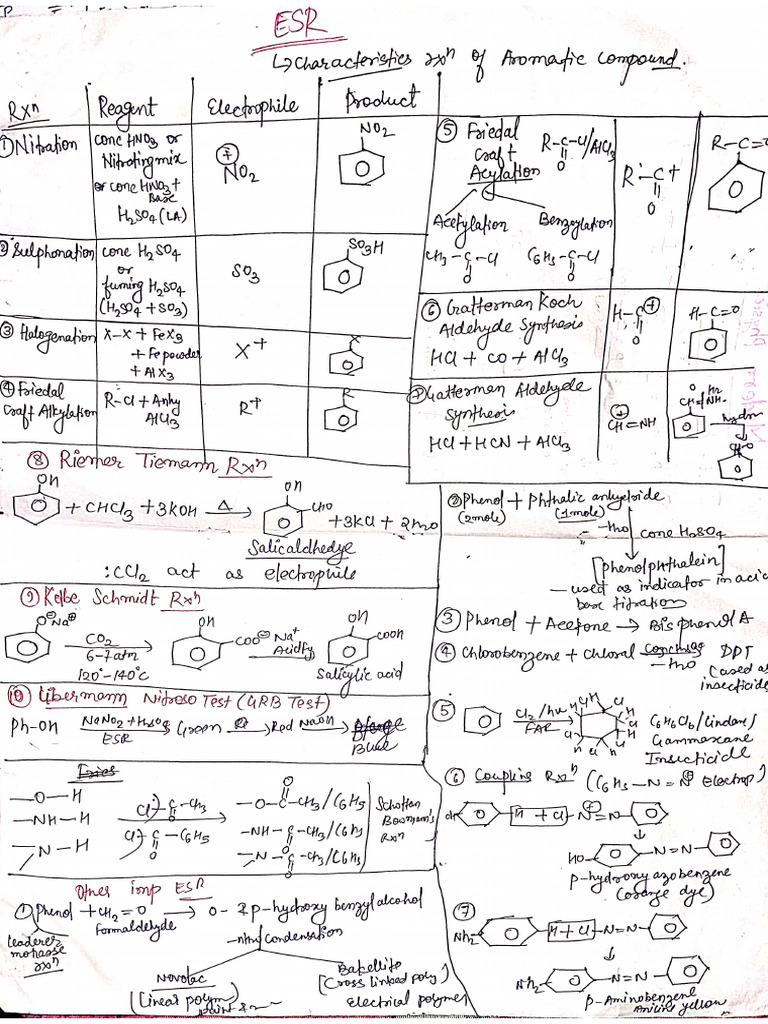 ESR
↳ characteristics rxⁿ of Aromatic compound.
Rxⁿ Reagent Electrophile Product
① Nitration
conc HNO3 or
Nitrating mix
or conc HNO3 +
Base
H2SO4 (LA)
⊕
NO2
NO2
② Sulphonation
conc H2SO4
or
fuming H2SO4
(H2SO4 + SO3)
SO3
SO3H
③ Halogenation
X-X + FeX3
+ Fe powder
+ AlX3
X+
X
④ Friedal
Craft Alkylation
R-Cl + Anhy
AlCl3
R+
R
⑤ Friedal
Craft
Acylation
R-C-Cl/AlCl3
O
R-C+
O
R-C=O
Acetylation Benzoylation
CH3-C-Cl C6H5-C-Cl
O O
⑥ Gatterman Koch
Aldehyde Synthesis
HCl + CO + AlCl3
H-C+
O
H-C=O
⑦ Gatterman Aldehyde
Synthesis
HCl + HCN + AlCl3
⊕
CH=NH
⑧ Riemer Tiemann Rxⁿ
OH OH
+ CHCl3 + 3KOH Δ → CHO + 3KCl + 2H2O
Salicaldhedye
:CCl2 act as electrophile
⑨ Kolbe Schmidt Rxⁿ
O⊖Na⊕ OH OH
CO2
6-7 atm
120°-140°C
COO⊖Na+
Acidify
COOH
Salicylic acid
⑩ Libermann Nitroso Test (LRB Test)
Ph-OH NaNO2 + H2SO4 → Green → Red NaOH →
ESR
Blue
-O-H
-NH-H
-N-H
Cl-C-CH3
O
Cl-C-C6H5
O
O
-O-C-CH3/C6H5
-NH-C-CH3/C6H5
-N-C-CH3/C6H5
Schotten
Baumann's
Rxⁿ
Other imp ESR
① Phenol + CH2=O → O- & p-hydroxy benzyl alcohol
Formaldehyde
Condensation
Novolac
(Linear polym)
Bakelite
(Cross linked poly)
Electrical polymer
② Phenol + Phthalic anhydride
(2mole) (1mole)
-H2O conc H2SO4
[phenolphthalein]
— used as indicator in acid
base titration
③ Phenol + Acetone → Bisphenol A
④ Chlorobenzene + Chloral conc H2SO4 DDT
-H2O
(used as
insecticide
⑤ Cl2/hν
FAR
C6H6Cl6/Lindane/
Gammexane
Insecticide
⑥ Coupling Rxⁿ (C6H5-N=N⊕ Electrop)
OH H + Cl -N=N-
↓
HO- -N=N-
p-hydroxy azobenzene
(orange dye)
⑦
NH2 H + Cl -N=N-
↓
NH2- -N=N-
p-Aminobenzene
Aniline yellow